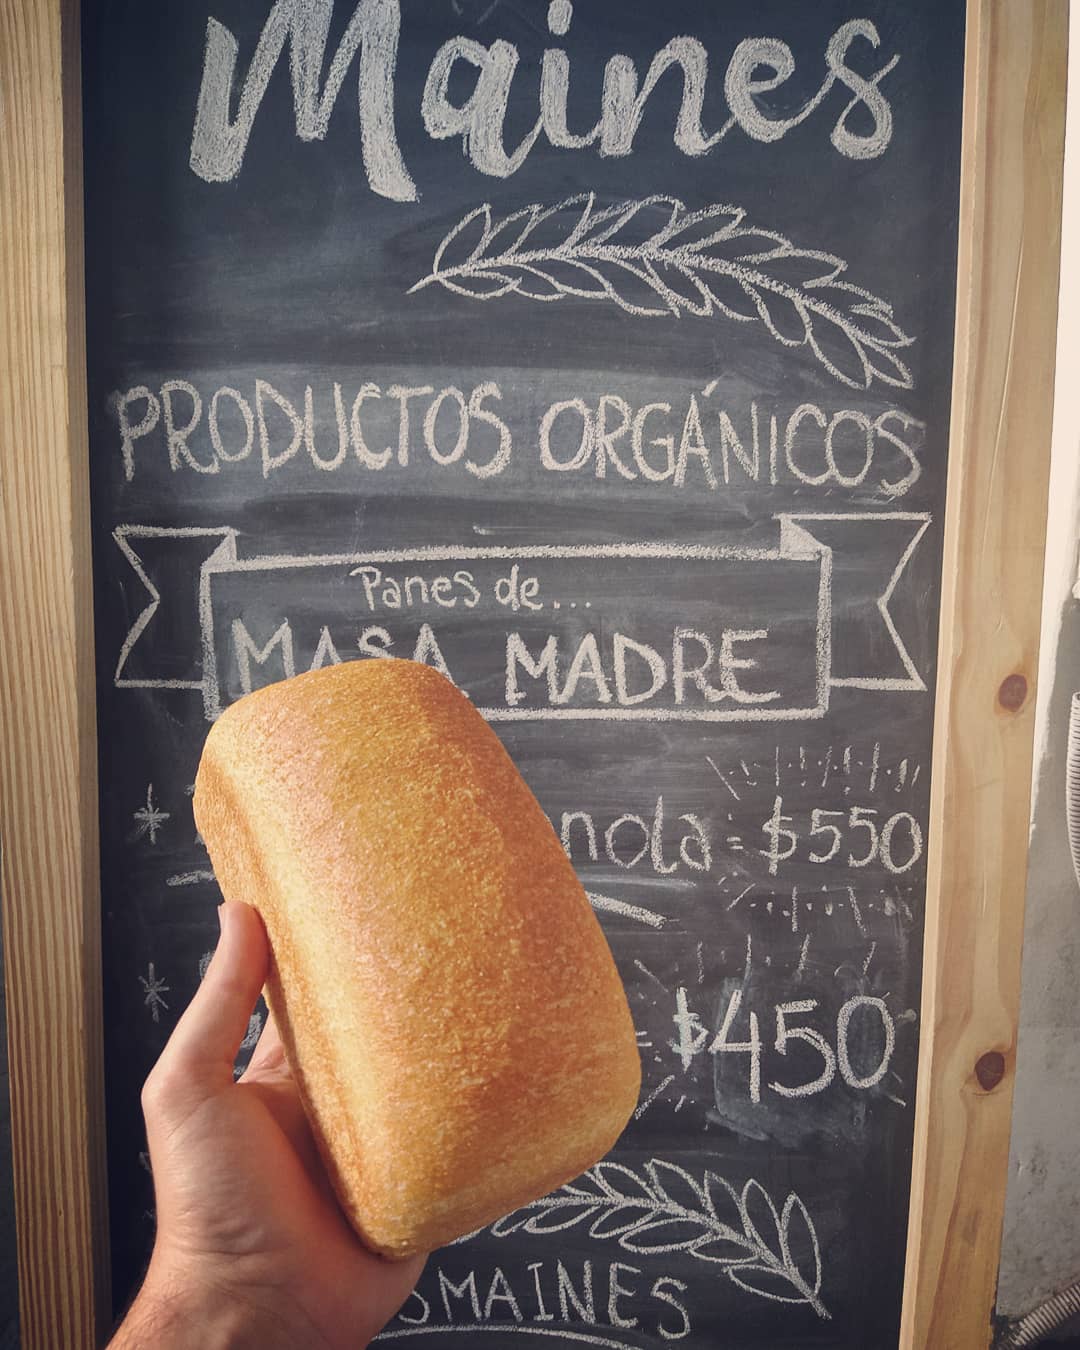 Maines
PRODUCTOS ORGÁNICOS
Panes de...
MASA MADRE
nola: $550
$450
SMAINES